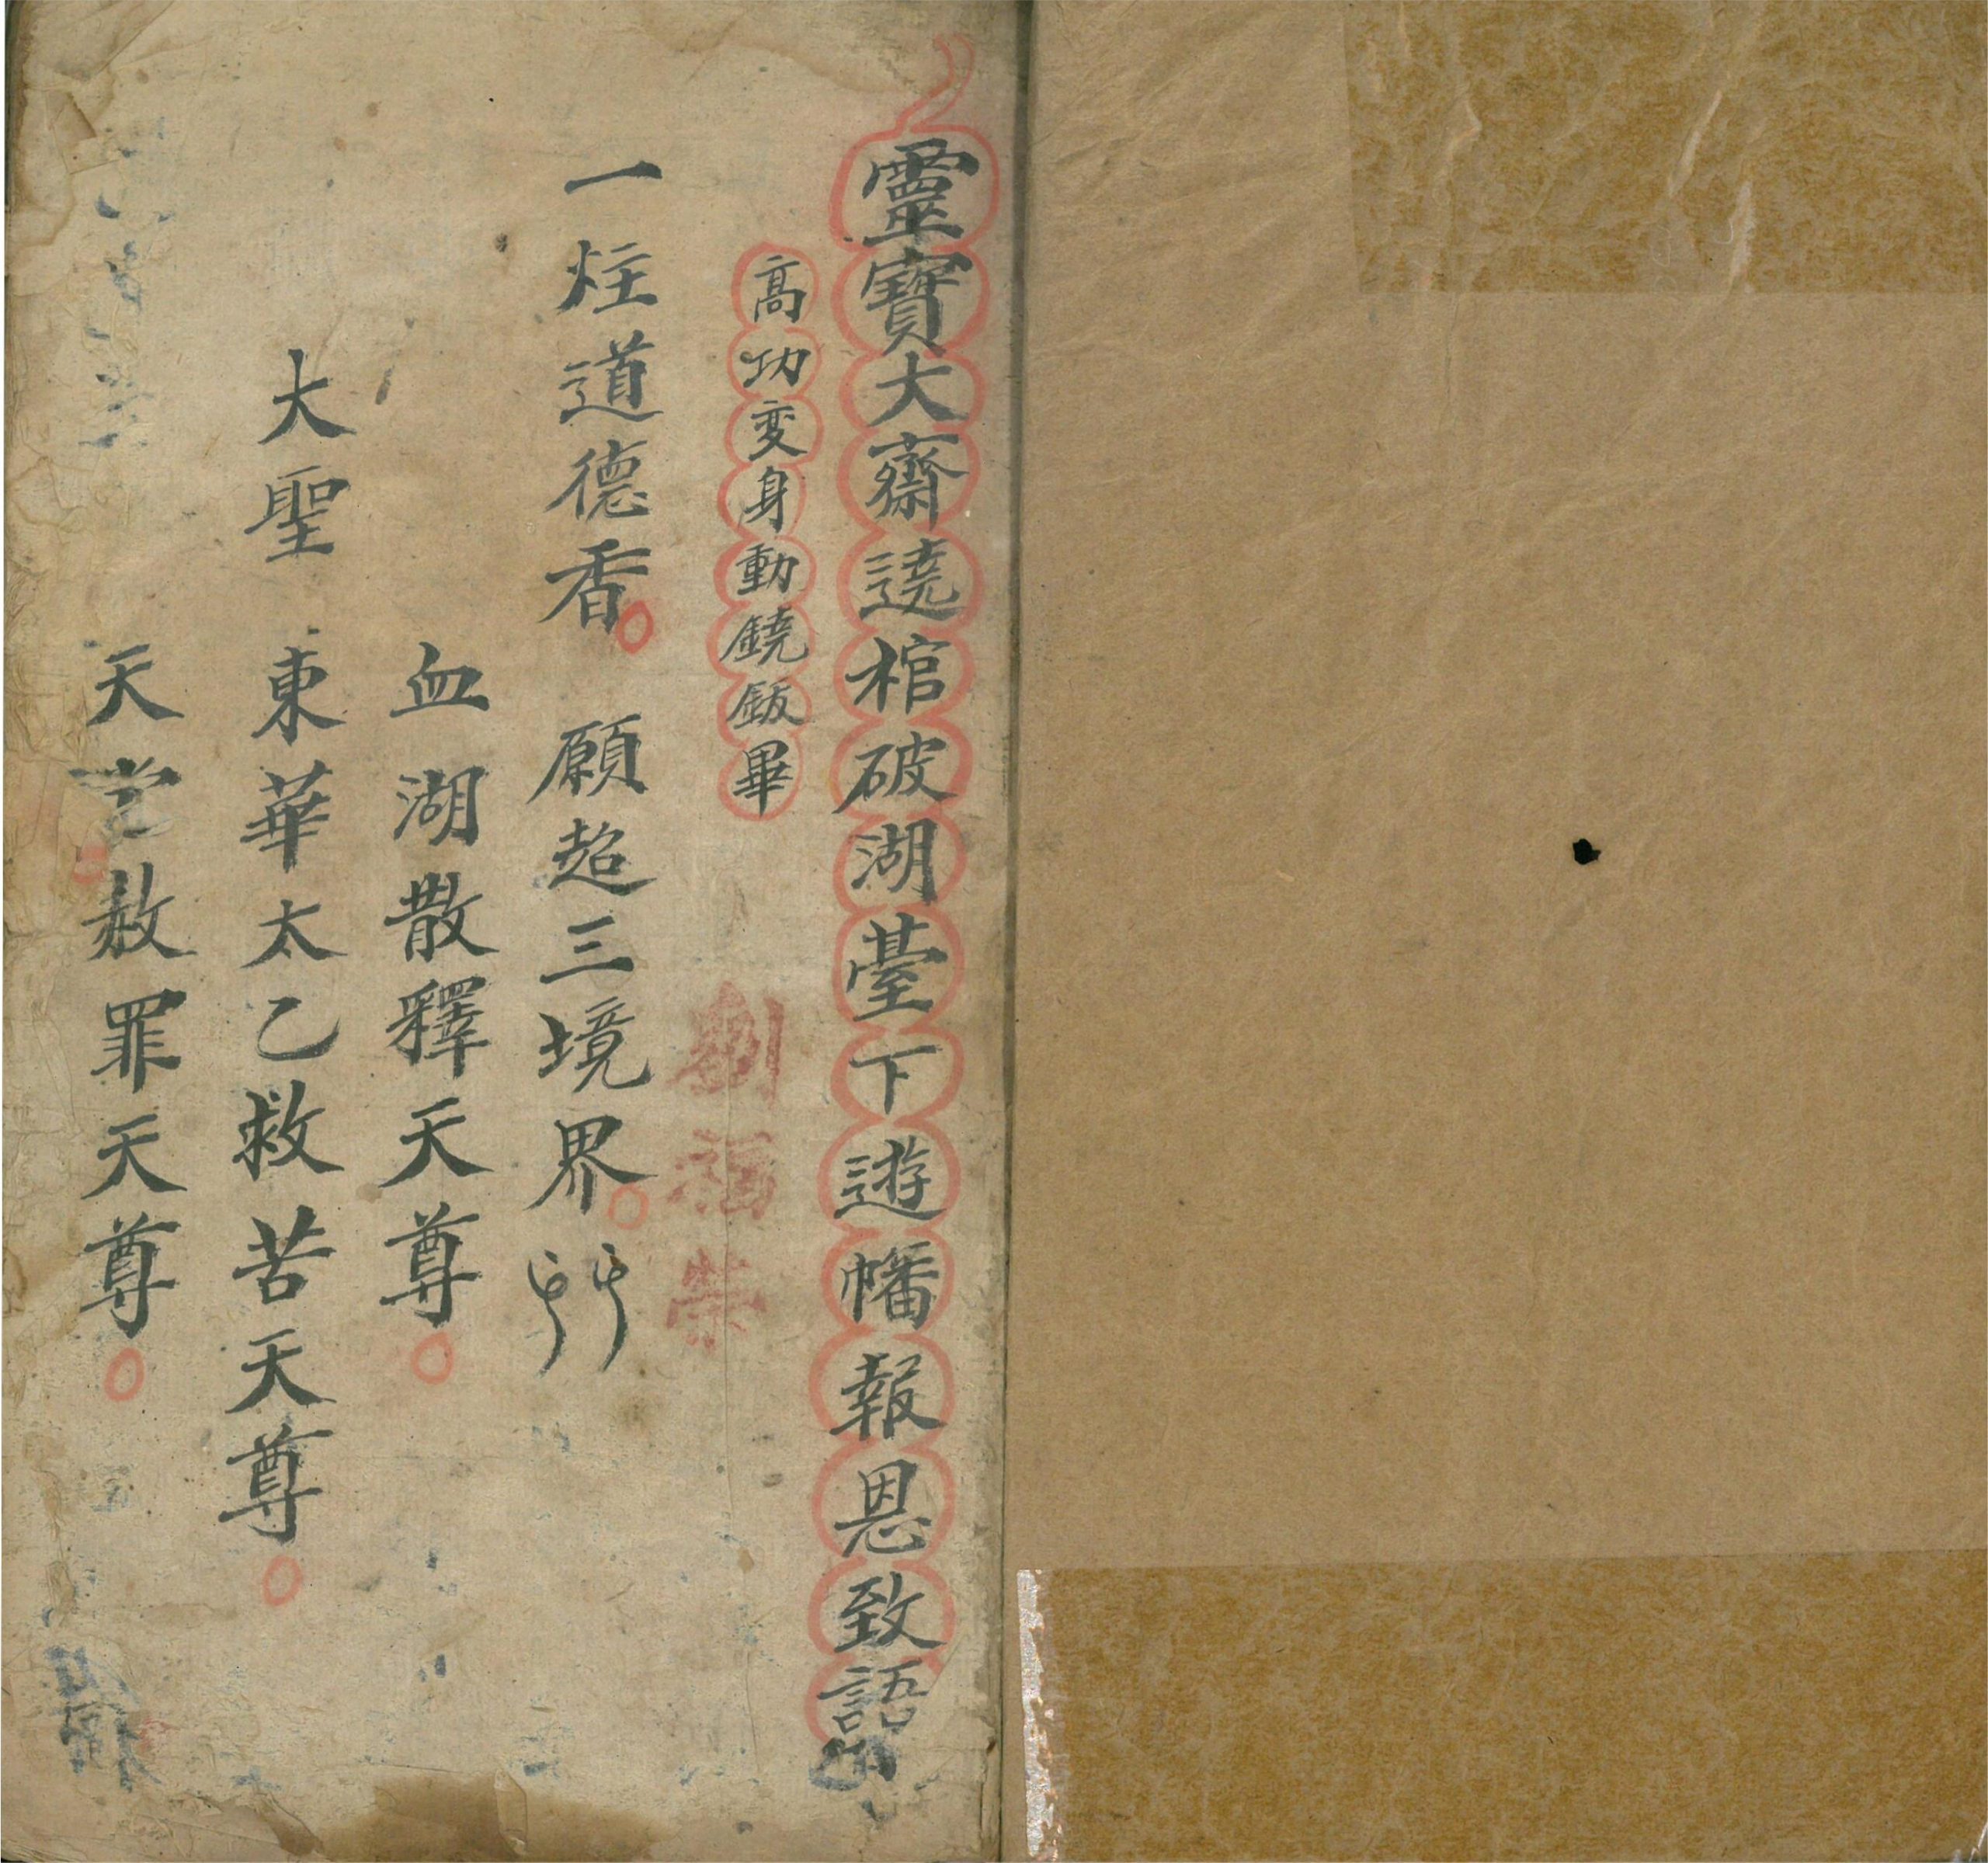 靈寶大齋遶棺破湖薹下遊幡報恩致語
高功変身動鐃鈑畢
劉福崇
一炷道德香 願超三境界
血湖散釋天尊
大聖 東華太乙救苦天尊
天堂赦罪天尊